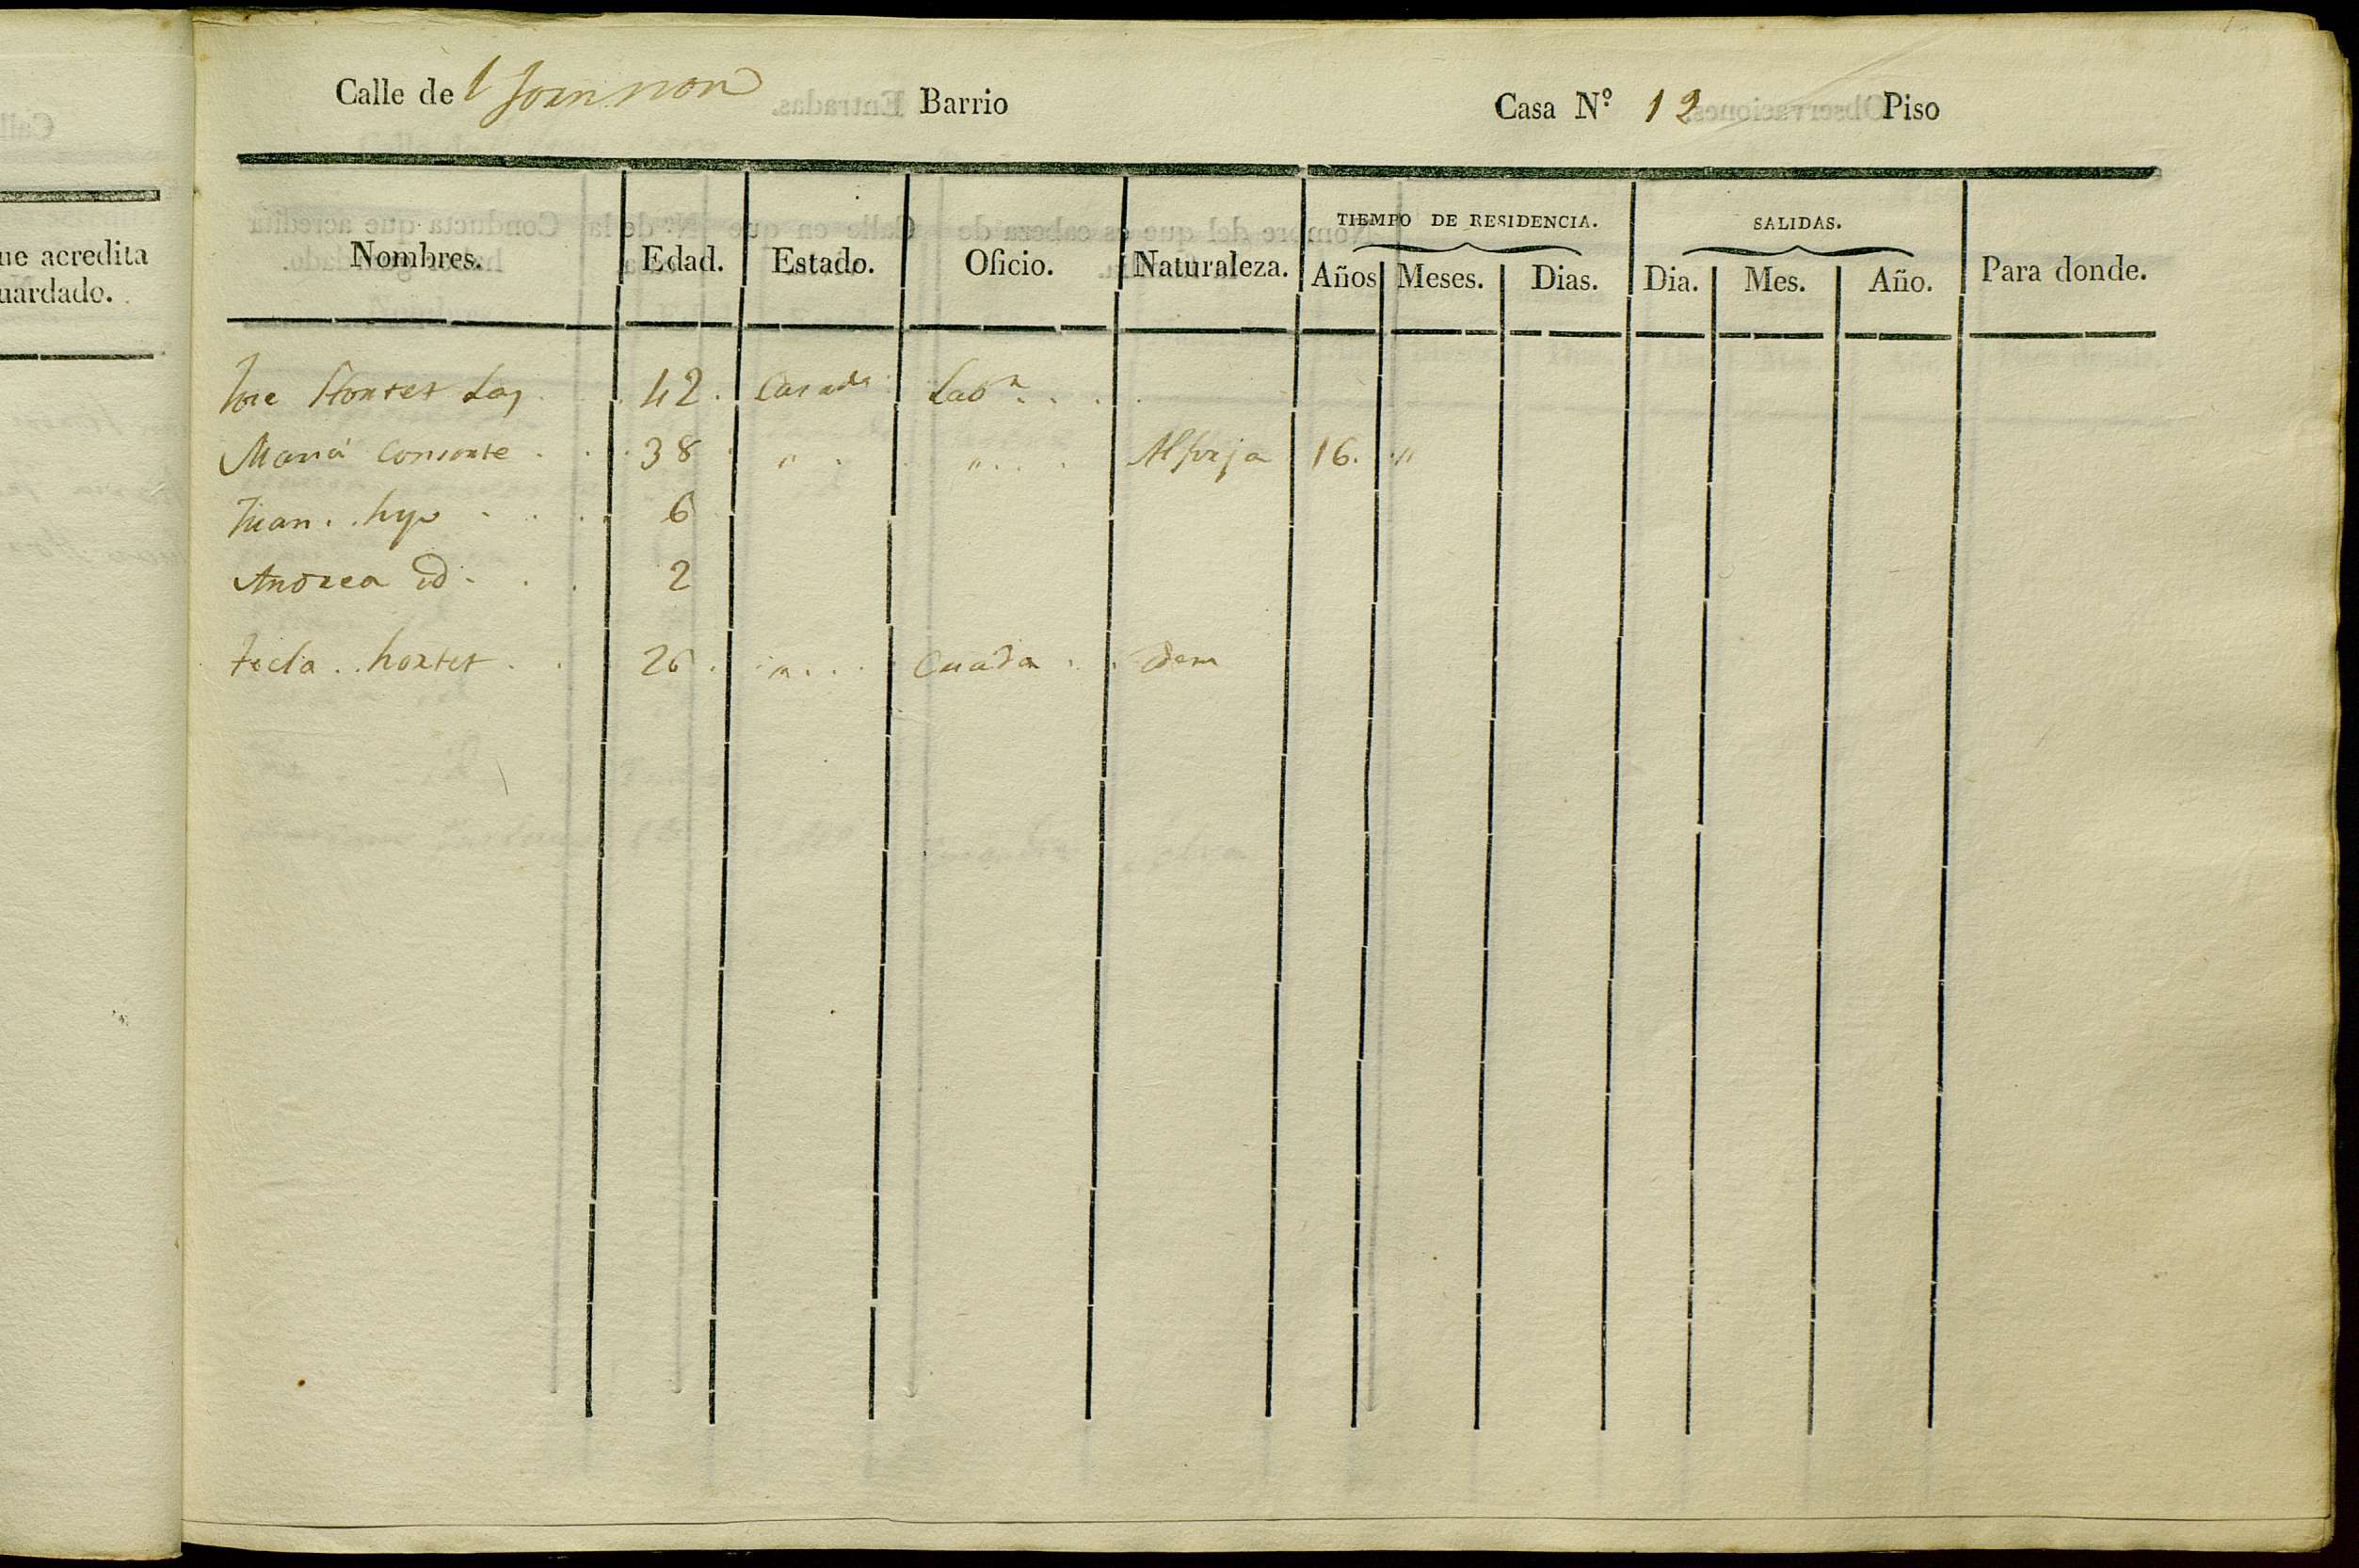 Calle de Barrio Casa Nº 12 Piso
Nombres. Edad. Estado. Oficio. Naturaleza. TIEMPO DE RESIDENCIA. Años Meses. Dias. SALIDAS. Dia. Mes. Año. Para donde.
Jose Hortet 42. Casado Labr
Maria consorte 38 " " Alforja 16. "
Juan hijo 6
Andrea id 2
Tecla hortet 26 " Criada Idem
ue acredita
uardado.